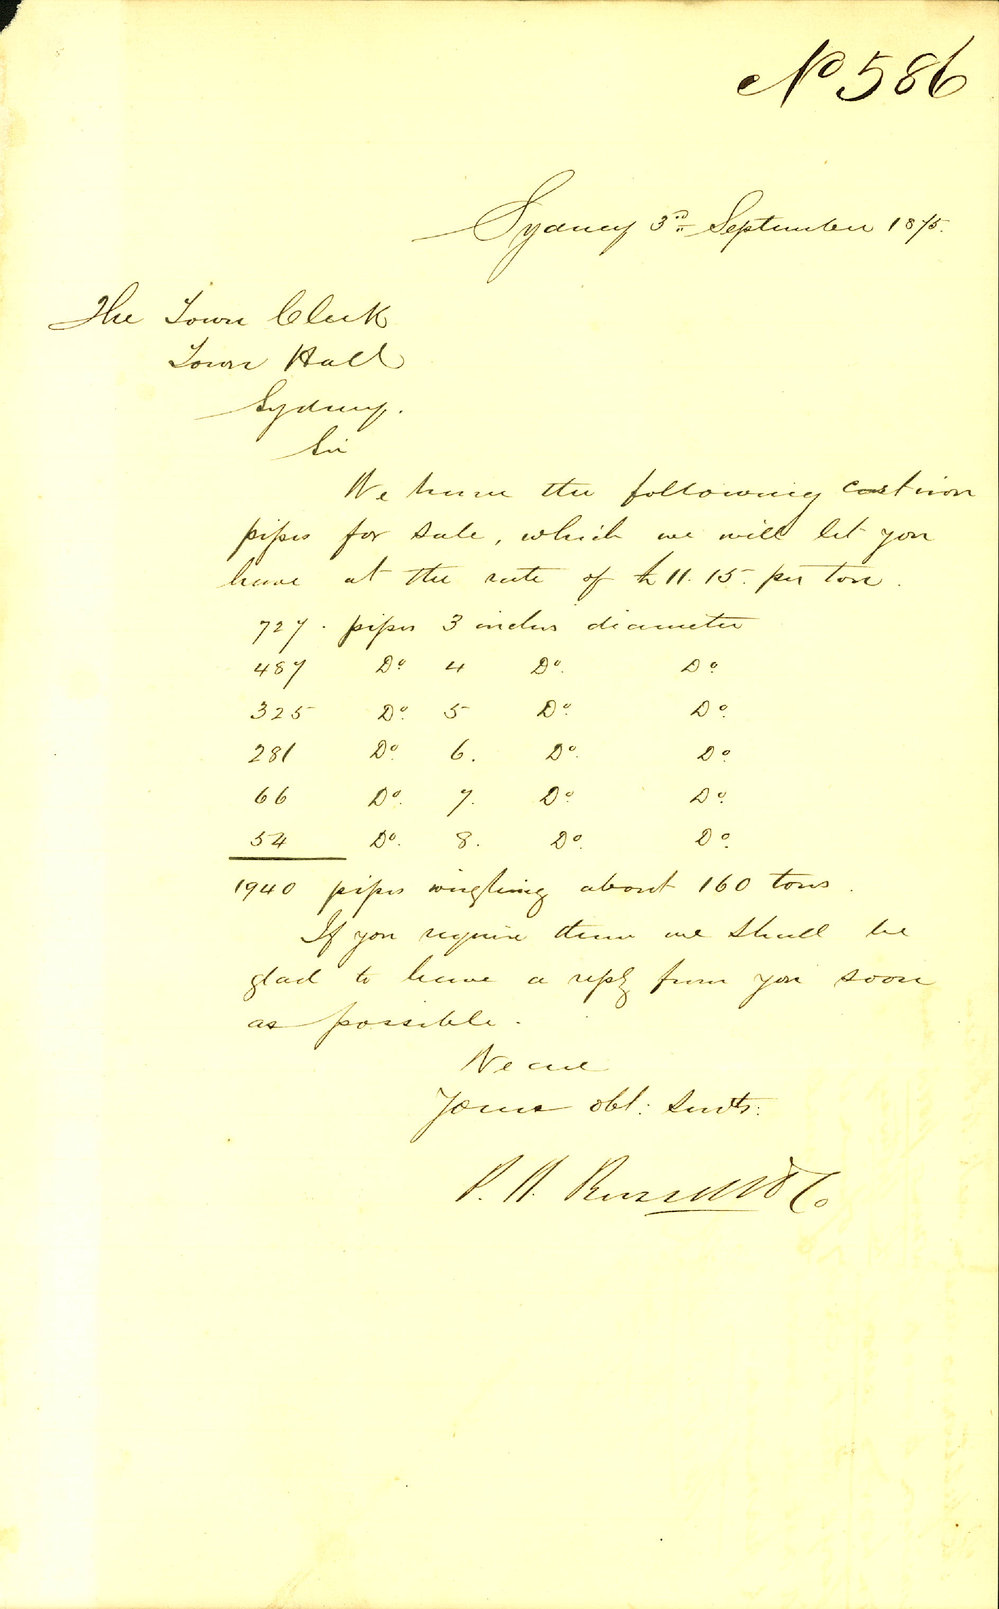 No 586
Sydney 3rd September 1875.
The Town Clerk
Town Hall
Sydney.
Sir
We have the following cast iron
pipes for sale, which we will let you
have at the rate of £11.15. per ton.
727. pipes 3 inches diameter
487 Do 4 Do. Do
325 Do. 5 Do. Do.
281 Do. 6. Do. Do
66 Do. 7. Do Do.
54 Do. 8. Do. Do.
1940 pipes weighing about 160 tons.
If you require them we shall be
glad to have a reply from you soon
as possible.
We are
Yours obt: Servts:
P. N. Russell & Co